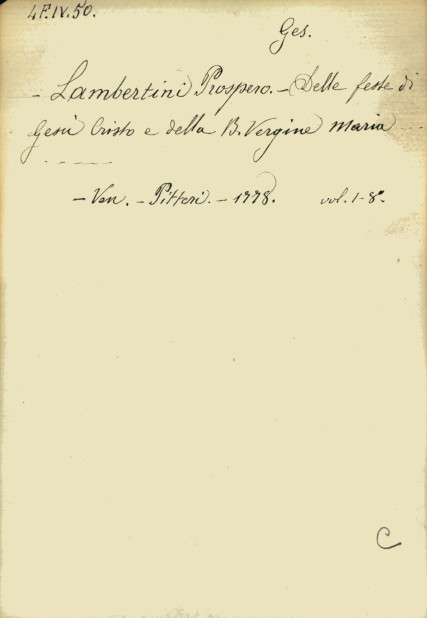 4F.IV.50.
Ges.
- Lambertini Prospero. - Delle feste di
Gesù Cristo e della B. Vergine Maria - - -
- - - - -
- Ven. - Pitteri. - 1778. vol. 1-8º.
C